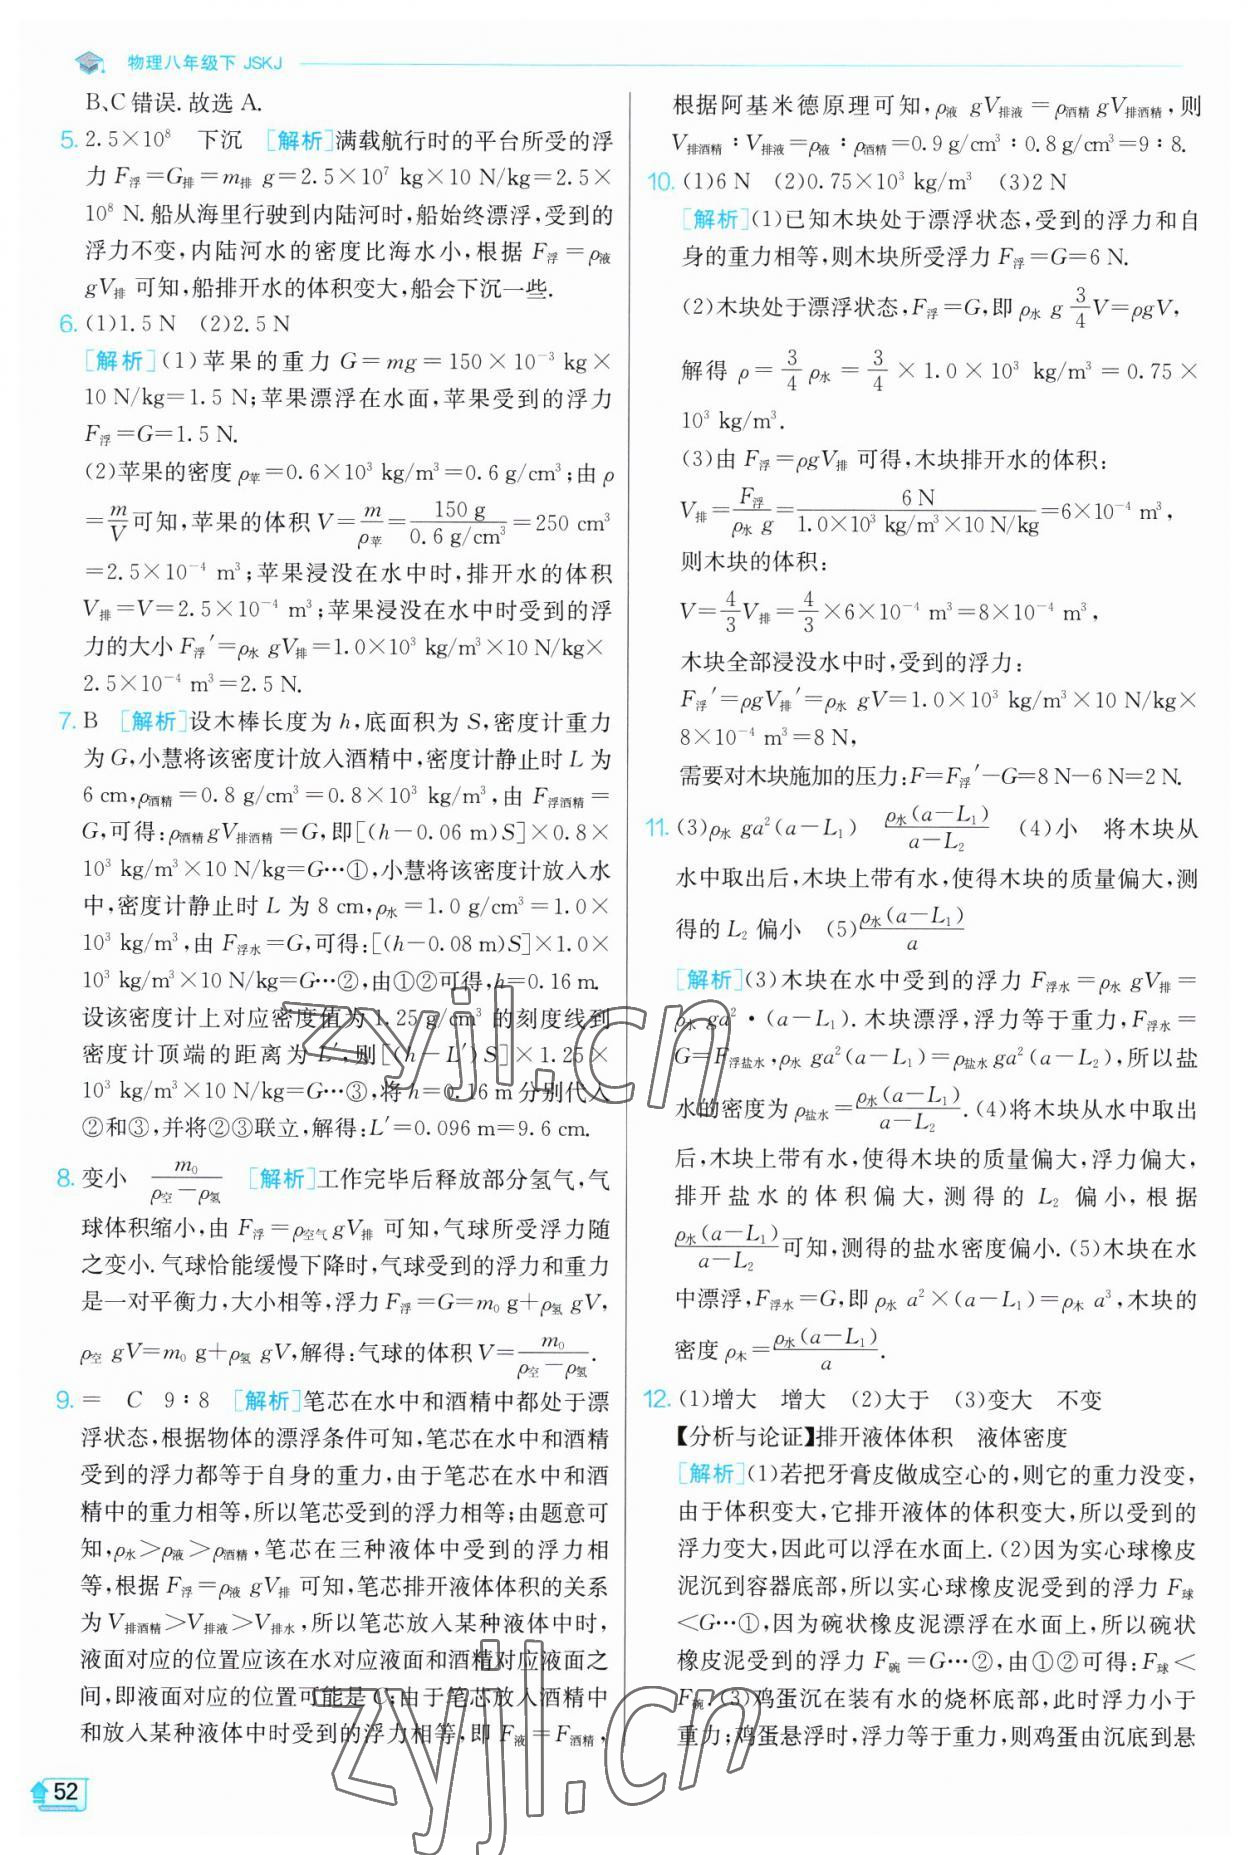 物理八年级下 JSKJ
B、C 错误. 故选 A.
5. 2.5×10⁸ 下沉 [解析]满载航行时的平台所受的浮
力 F浮=G排=m排 g=2.5×10⁷ kg×10 N/kg=2.5×
10⁸ N. 船从海里行驶到内陆河时,船始终漂浮,受到的
浮力不变,内陆河水的密度比海水小,根据 F浮=ρ液
gV排 可知,船排开水的体积变大,船会下沉一些.
6. (1)1.5 N (2)2.5 N
[解析](1)苹果的重力 G=mg=150×10⁻³ kg×
10 N/kg=1.5 N;苹果漂浮在水面,苹果受到的浮力
F浮=G=1.5 N.
(2)苹果的密度 ρ苹=0.6×10³ kg/m³=0.6 g/cm³;由 ρ
=m/V可知,苹果的体积 V=m/ρ苹=150 g/0.6 g/cm³=250 cm³
=2.5×10⁻⁴ m³;苹果浸没在水中时,排开水的体积
V排=V=2.5×10⁻⁴ m³;苹果浸没在水中时受到的浮
力的大小 F浮′=ρ水 gV排=1.0×10³ kg/m³×10 N/kg×
2.5×10⁻⁴ m³=2.5 N.
7. B [解析]设木棒长度为 h,底面积为 S,密度计重力
为 G,小慧将该密度计放入酒精中,密度计静止时 L 为
6 cm,ρ酒精=0.8 g/cm³=0.8×10³ kg/m³,由 F浮酒精=
G,可得:ρ酒精gV排酒精=G,即[(h-0.06 m)S]×0.8×
10³ kg/m³×10 N/kg=G…①,小慧将该密度计放入水
中,密度计静止时 L 为 8 cm,ρ水=1.0 g/cm³=1.0×
10³ kg/m³,由 F浮水=G,可得:[(h-0.08 m)S]×1.0×
10³ kg/m³×10 N/kg=G…②,由①②可得,h=0.16 m.
设该密度计上对应密度值为 1.25 g/cm³ 的刻度线到
密度计顶端的距离为 L′,则[(h-L′)S]×1.25×
10³ kg/m³×10 N/kg=G…③,将 h=0.16 m 分别代入
②和③,并将②③联立,解得:L′=0.096 m=9.6 cm.
8. 变小 m₀/(ρ空-ρ氢) [解析]工作完毕后释放部分氢气,气
球体积缩小,由 F浮=ρ空气gV排 可知,气球所受浮力随
之变小. 气球恰能缓慢下降时,气球受到的浮力和重力
是一对平衡力,大小相等,浮力 F浮=G=m₀ g+ρ氢 gV,
ρ空 gV=m₀ g+ρ氢 gV,解得:气球的体积 V=m₀/(ρ空-ρ氢).
9. = C 9∶8 [解析]笔芯在水中和酒精中都处于漂
浮状态,根据物体的漂浮条件可知,笔芯在水中和酒精
受到的浮力都等于自身的重力,由于笔芯在水中和酒
精中的重力相等,所以笔芯受到的浮力相等;由题意可
知,ρ水>ρ液>ρ酒精,笔芯在三种液体中受到的浮力相
等,根据 F浮=ρ液 gV排 可知,笔芯排开液体体积的关系
为 V排酒精>V排液>V排水,所以笔芯放入某种液体中时,
液面对应的位置应该在水对应液面和酒精对应液面之
间,即液面对应的位置可能是 C;由于笔芯放入酒精中
和放入某种液体中时受到的浮力相等,即 F液=F酒精,
根据阿基米德原理可知,ρ液 gV排液=ρ酒精 gV排酒精,则
V排酒精∶V排液=ρ液∶ρ酒精=0.9 g/cm³∶0.8 g/cm³=9∶8.
10. (1)6 N (2)0.75×10³ kg/m³ (3)2 N
[解析](1)已知木块处于漂浮状态,受到的浮力和自
身的重力相等,则木块所受浮力 F浮=G=6 N.
(2)木块处于漂浮状态,F浮=G,即 ρ水 g 3/4 V=ρgV,
解得 ρ=3/4 ρ水=3/4×1.0×10³ kg/m³=0.75×
10³ kg/m³.
(3)由 F浮=ρgV排 可得,木块排开水的体积:
V排=F浮/(ρ水 g)=6 N/(1.0×10³ kg/m³×10 N/kg)=6×10⁻⁴ m³,
则木块的体积:
V=4/3 V排=4/3×6×10⁻⁴ m³=8×10⁻⁴ m³,
木块全部浸没水中时,受到的浮力:
F浮′=ρgV排′=ρ水 gV=1.0×10³ kg/m³×10 N/kg×
8×10⁻⁴ m³=8 N,
需要对木块施加的压力:F=F浮′-G=8 N-6 N=2 N.
11. (3)ρ水 ga²(a-L₁) ρ水(a-L₁)/(a-L₂) (4)小 将木块从
水中取出后,木块上带有水,使得木块的质量偏大,测
得的 L₂ 偏小 (5)ρ水(a-L₁)/a
[解析](3)木块在水中受到的浮力 F浮水=ρ水 gV排=
ρ水 ga²·(a-L₁). 木块漂浮,浮力等于重力,F浮水=
G=F浮盐水,ρ水 ga²(a-L₁)=ρ盐水 ga²(a-L₂),所以盐
水的密度为 ρ盐水=ρ水(a-L₁)/(a-L₂). (4)将木块从水中取出
后,木块上带有水,使得木块的质量偏大,浮力偏大,
排开盐水的体积偏大,测得的 L₂ 偏小,根据
ρ水(a-L₁)/(a-L₂)可知,测得的盐水密度偏小. (5)木块在水
中漂浮,F浮水=G,即 ρ水 a²×(a-L₁)=ρ木 a³,木块的
密度 ρ木=ρ水(a-L₁)/a.
12. (1)增大 增大 (2)大于 (3)变大 不变
【分析与论证】排开液体体积 液体密度
[解析](1)若把牙膏皮做成空心的,则它的重力没变,
由于体积变大,它排开液体的体积变大,所以受到的
浮力变大,因此可以浮在水面上. (2)因为实心球橡皮
泥沉到容器底部,所以实心球橡皮泥受到的浮力 F球
<G…①,因为碗状橡皮泥漂浮在水面上,所以碗状
橡皮泥受到的浮力 F碗=G…②,由①②可得:F球<
F碗. (3)鸡蛋沉在装有水的烧杯底部,此时浮力小于
重力;鸡蛋悬浮时,浮力等于重力,则鸡蛋由沉底到悬
52
zyjl.cn
zyjl.cn